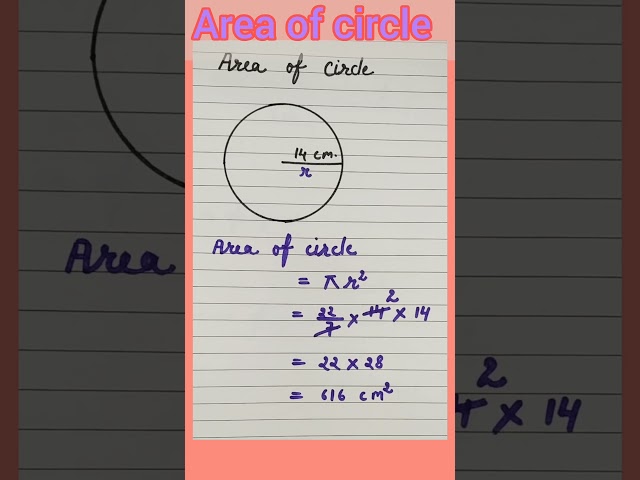 Area of circle
Area of circle
14 cm.
r
Area of circle
= πr²
2
= 22/7 × 14 × 14
= 22 × 28
= 616 cm²
Area
2
4 × 14